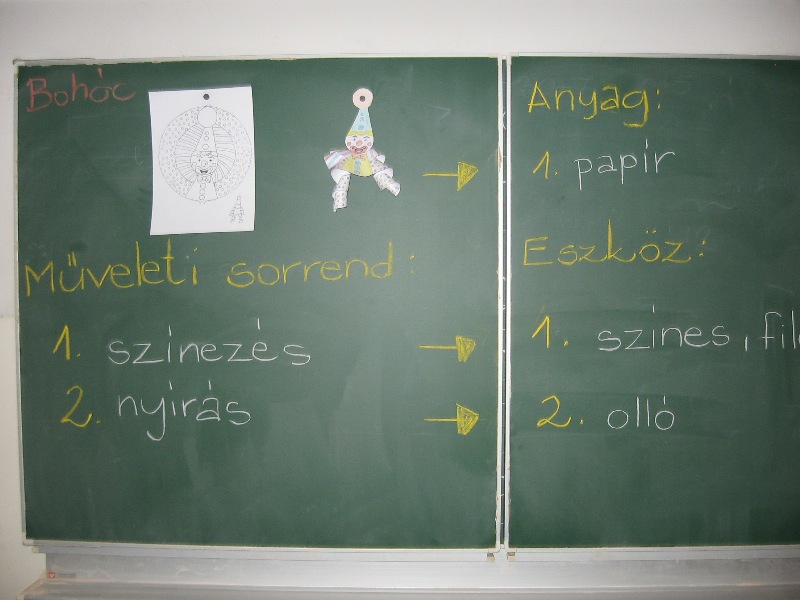 Bohóc
Műveleti sorrend:
1. színezés
2. nyírás
Anyag:
1. papír
Eszköz:
1. színes, fil
2. olló